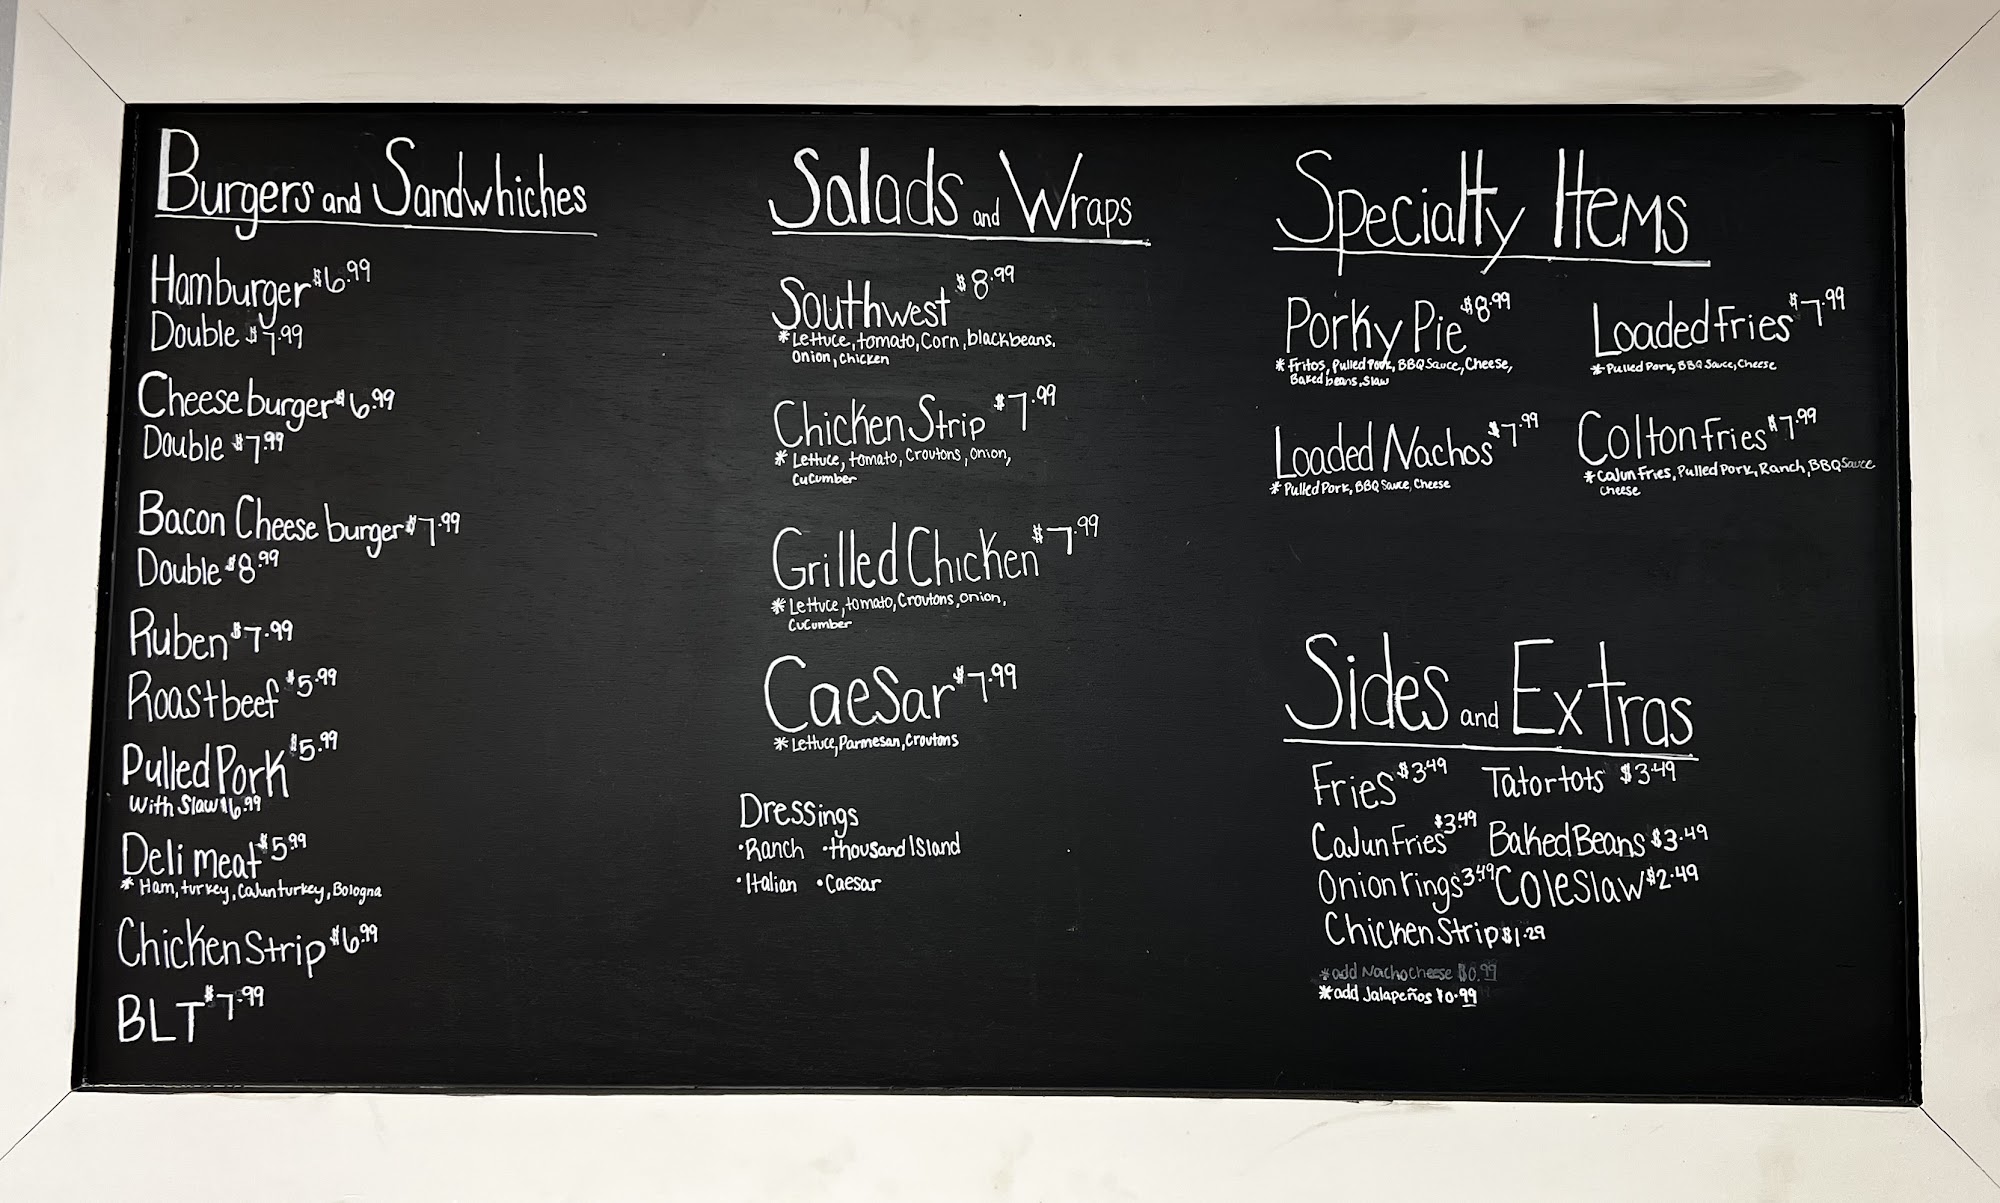 Burgers and Sandwhiches
Hamburger $6.99
Double $7.99
Cheeseburger $6.99
Double $7.99
Bacon Cheese burger $7.99
Double $8.99
Ruben $7.99
Roast beef $5.99
Pulled Pork $5.99
With Slaw $6.99
Deli meat $5.99
* Ham, turkey, Cajun turkey, Bologna
Chicken Strip $6.99
BLT $7.99
Salads and Wraps
Southwest $8.99
* Lettuce, tomato, Corn, black beans,
Onion, chicken
Chicken Strip $7.99
* Lettuce, tomato, Croutons, Onion,
Cucumber
Grilled Chicken $7.99
* Lettuce, tomato, Croutons, onion,
Cucumber
Caesar $7.99
* Lettuce, Parmesan, Croutons
Dressings
• Ranch • thousand Island
• Italian • Caesar
Specialty Items
Porky Pie $8.99
* Fritos, Pulled Pork, BBQ Sauce, Cheese,
Baked beans, Slaw
Loaded fries $7.99
* Pulled Pork, BBQ Sauce, Cheese
Loaded Nachos $7.99
* Pulled Pork, BBQ Sauce, Cheese
Colton fries $7.99
* Cajun fries, Pulled Pork, Ranch, BBQ Sauce
Cheese
Sides and Extras
Fries $3.49 Tatortots $3.49
Cajun Fries $3.49 Baked Beans $3.49
Onion rings 3.49 Coleslaw $2.49
Chicken Strip $1.29
* add Nacho cheese $0.99
* add Jalapeños $0.99